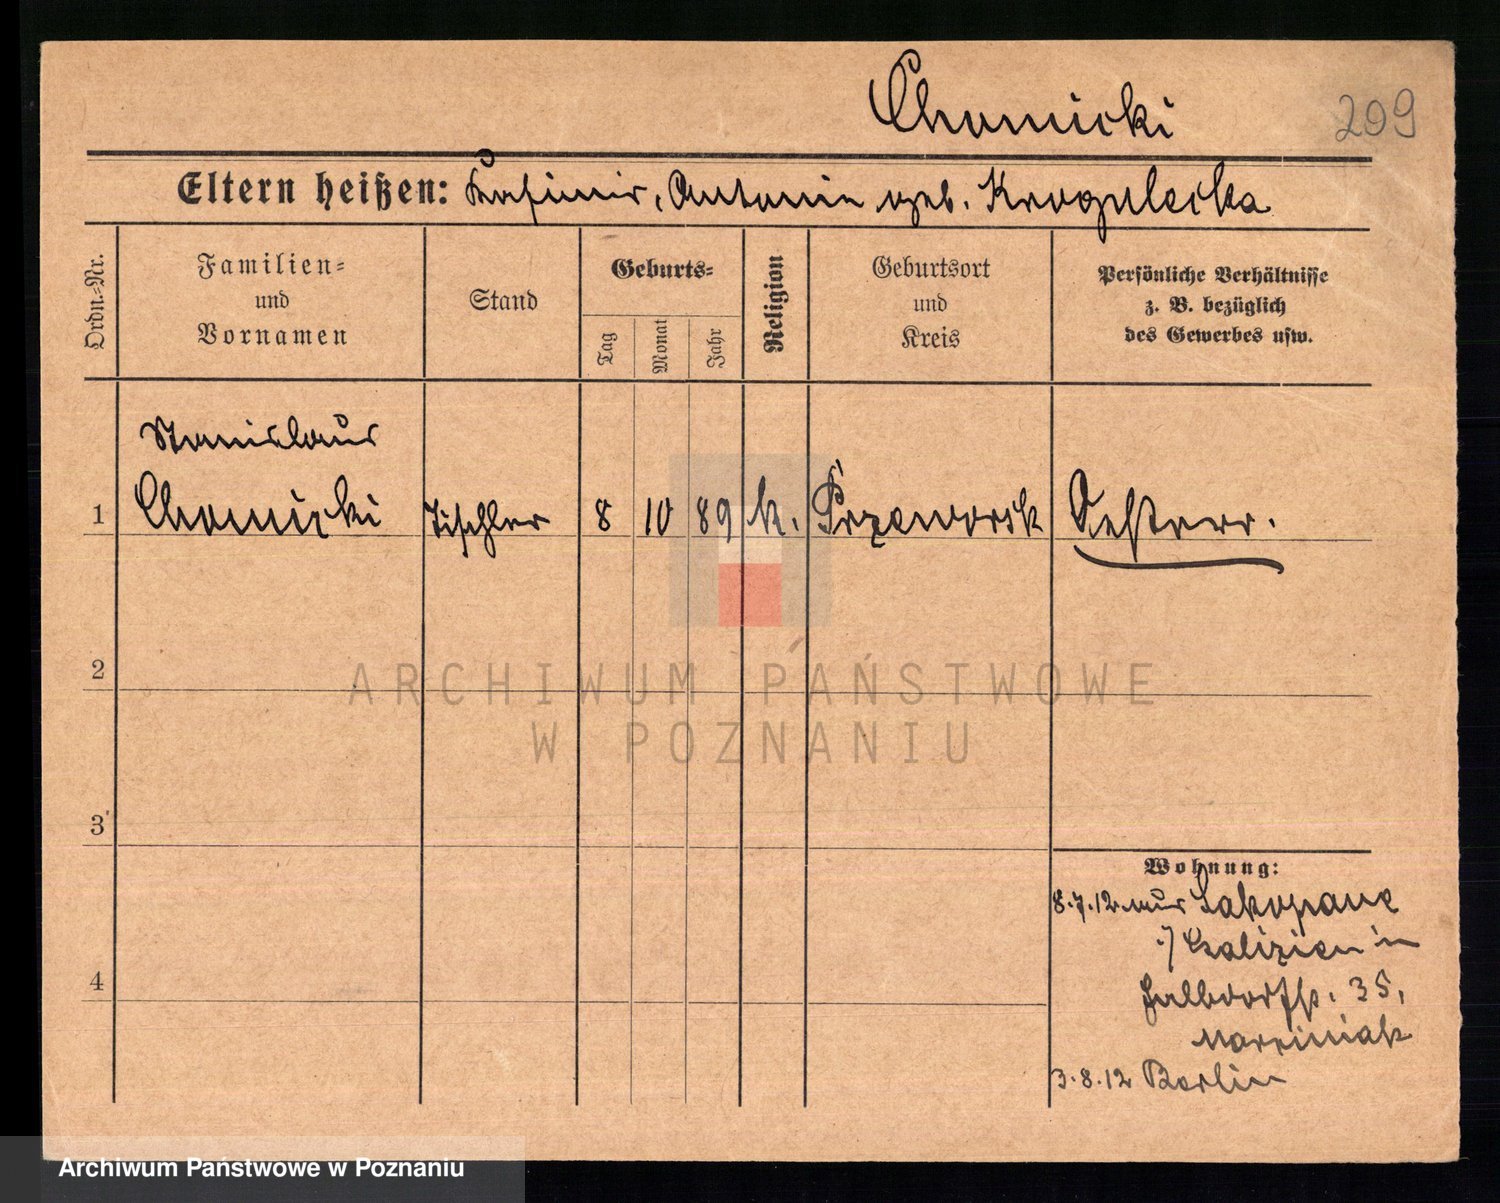 Chomicki
209
Eltern heißen: Kasimir, Antonie geb. Krogulecka
Ordn.-Nr.
Familien-
und
Vornamen
Stand
Geburts-
Tag
Monat
Jahr
Religion
Geburtsort
und
Kreis
Persönliche Verhältnisse
z. B. bezüglich
des Gewerbes usw.
Stanislaus
1 Chomicki Tischler 8 10 89 k. Przeworsk Oesterr.
2
3
4
Wohnung:
8.7.12 aus Zakopane
i/ Galizien in
Halbdorfstr. 35,
3.8.12 Berlin
ARCHIWUM PAŃSTWOWE
W POZNANIU
Archiwum Państwowe w Poznaniu